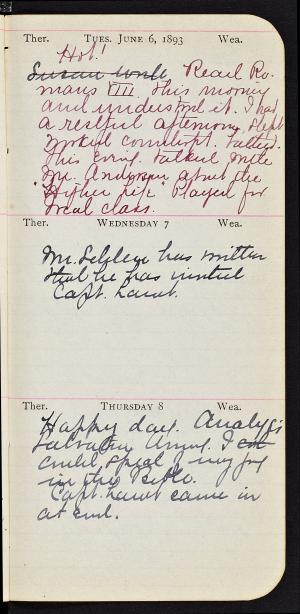 Ther. TUES. JUNE 6, 1893 Wea.
Hot!
Read Ro-
mans VIII. this morning
and understood it. I had
a restful afternoon, slept
talked
this evng. talked with
Mr. Anderson about the
"Higher life" Played for
vocal class.
Ther. WEDNESDAY 7 Wea.
Mr. has written
that he has invited
Capt.
Ther. THURSDAY 8 Wea.
Happy day.
Salvation Army. I
could speak of my joy
in this Bible.
Capt. came in
at end.